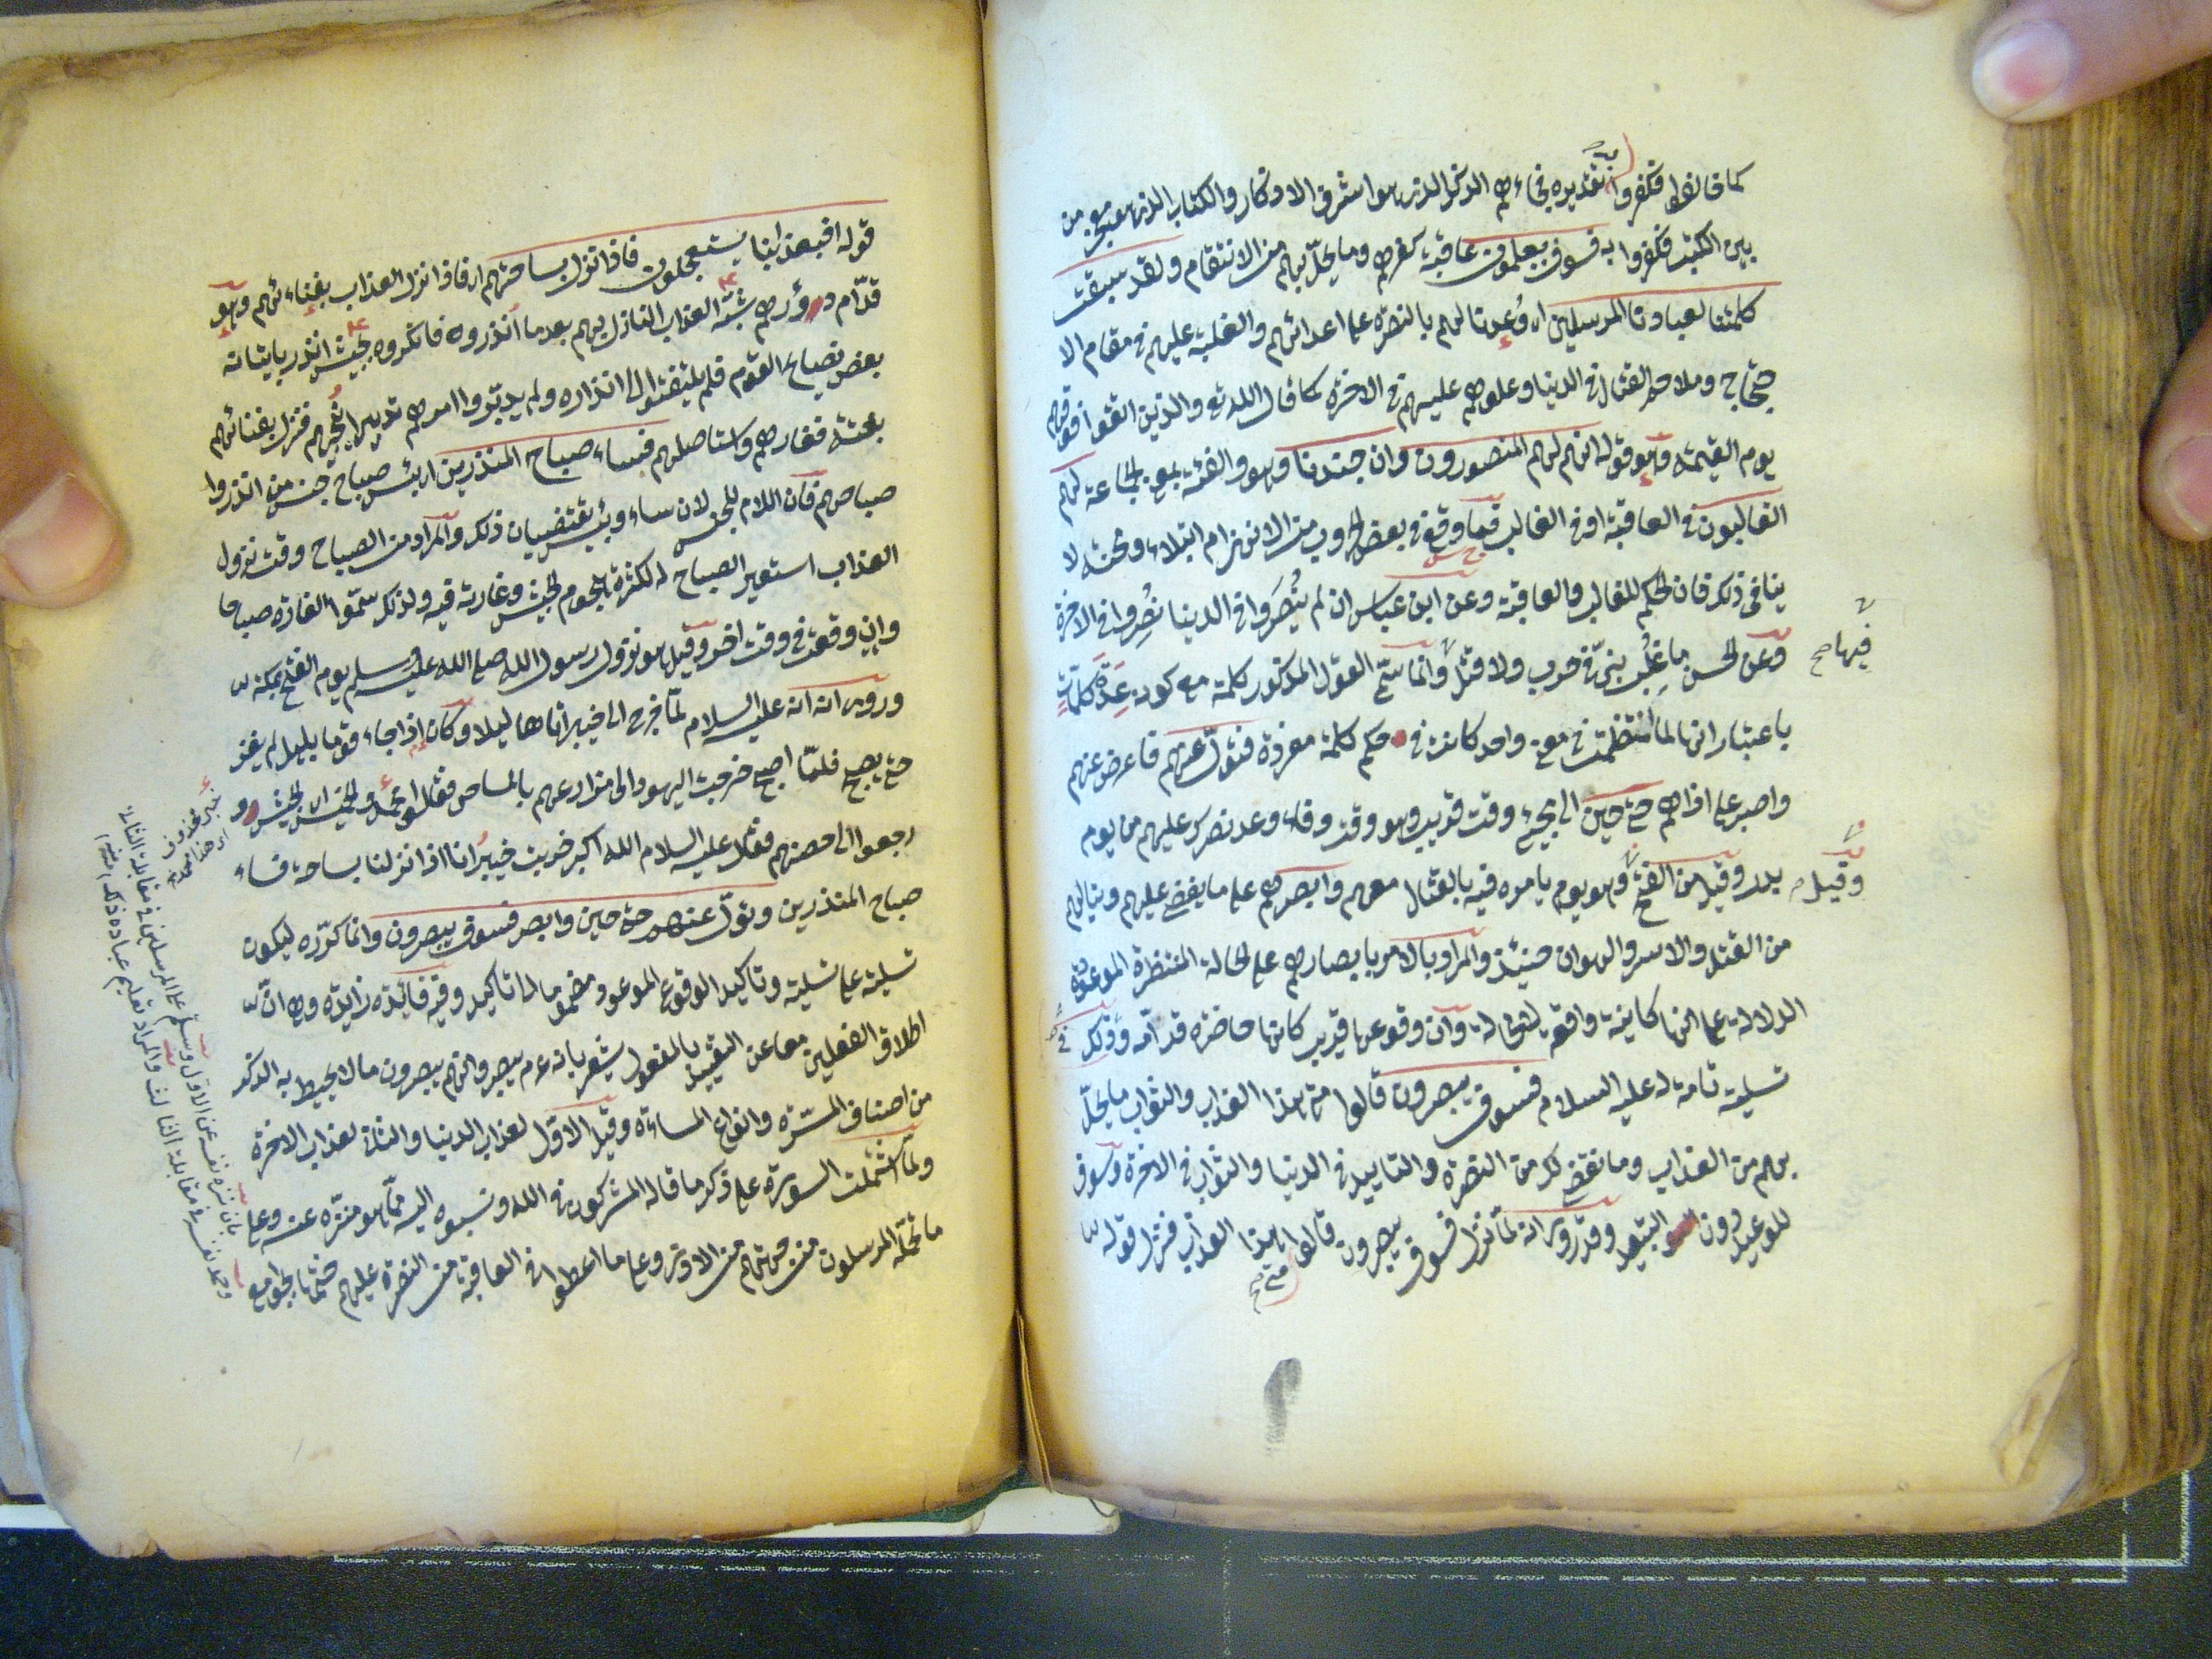 كما قالوا فكفروا به تقديره فجاءهم الذكر الذى هو اشرف الاذكار والكتاب الذى هو معجز من
بين الكتب فكفروا به فسوف يعلمون عاقبة كفرهم وما يحلّ بهم من الانتقام ولقد سبقت
كلمتنا لعبادنا المرسلين اى وُعِدنا لهم بالنصرة على اعدائهم والغلبة عليهم فى مقام الا
حتجاج وملاحم القتال فى الدنيا وعلوهم عليهم فى الاخرة كما قال الله تع والذين اتقوا فوقهم
يوم القيمة وهو قوله انهم لهم المنصورون وان جندنا وهو والفئة بمعنى الجماعة لهم
الغالبون فى العاقبة او فى الغالب فما وقع فى بعض الحروب من الانهزام ابتلاء ومحنة لا
ينافى ذلك فان الحكم للغالب والعاقبة وعن ابن عباس ان لم يُنصَروا فى الدنيا نُصِروا فى الاخرة
وعن الحسن ما غُلِب نبىّ فى حرب ولا قتل فيها وانما سمّى القول المذكور كلمة مع كونه عِدَةَ كلماتٍ
باعتبار انها لما انتظمت فى معنى واحد كانت فى حكم كلمة مفردة فتولّ عنهم فاعرض عنهم
واصبر على اذاهم حتى حين الى مجئ وقت قريب وهو وقت وفاء وعد نصرك عليهم من يوم
بدر وقيل من الفتح وقيل هو يوم يامره فيه بالقتال معهم وابصرهم على ما يقضى عليهم وينالهم
من القتل والاسر والهوان حينئذ والمراد بالامر بابصارهم على الحالة المنتظرة الموعودة
الدلالة على انها كاينة واقعة لا محالة وان وقوعها قريب كانها حاضرة قدامه وفى ذلك
تسلية تامة له عليه السلام فسوف يبصرون قالوا متى هذا العذاب والثواب ما يحلّ
بهم من العذاب وما نقضى لك من النصرة والتاييد فى الدنيا والثواب فى الاخرة وسوف
للوعيد دون التبعيد وقد روى انه لما نزل فسوف يبصرون قالوا متى هذا العذاب فنزل قوله
قوله افبعذابنا يستعجلون فاذا نزل بساحتهم اى فاذا نزل العذاب بفِناءِئهم وهو
قدّام دورهم شبّه العذاب النازل بهم بعدما اُنذروه فانكروه بجيش انذر باتيانه
بعض نصاح القوم فلم يلتفتوا الى انذاره ولم يدبّروا امرهم تدبيرا يُنجيهم فنزل بفنائهم
بغتة فغارهم واستاصلهم فساء صباح المنذرين اى بئس صباح جنس من انذروا
صباحهم فان اللام للجنس لان ساء وبئس يقتضيان ذلك والمراد من الصباح وقت نزول
العذاب استعير الصباح له لكثرة هجوم الجيش وغارته فيه ولذلك سمّوا الغارة صباحا
وان وقعت فى وقت اخر وقيل هو نزول رسول الله صلى الله عليه وسلم يوم الفتح بمكة
وروى انه انه عليه السلام لما خرج الى خيبر اتاها ليلا وكان اذا جاء قوما بليل لم يغز
حتى يصبح فلمّا اصبح خرجت اليهود الى مزارعهم بالمساحى فقالوا محمدٌ والخميس اى الجيش و
رجعوا الى حصنهم فقال عليه السلام الله اكبر خربت خيبرُ انا اذا نزلنا بساحة فساء
صباح المنذرين وتولّ عنهم حتى حين وابصر فسوف يبصرون وانما كرّره ليكون
تسلية على تسلية وتاكيد الوقوع الموعود مضموما الى تاكيد وفيه فايدة زايدة وهى انّ
اطلاق الفعلين معا عن التقييد بالمفعول يشعر بانه عم يبصر وانهم يبصرون ما لا يحيط به الذكر
من اصناف المسرّة وانواع المساءة وقيل الاول لعذاب الدنيا والثانى لعذاب الاخرة
ولما اشتملت السورة على ذكر ما قاله المشركون فى الله ونسبوه اليه مما هو منزّه عنه وعلى
ما تحمّله المرسلون من جهتهم من الاذى وعلى ما اعطوا فى العاقبة من النصرة عليهم ختمها بجوامع
خبر محذوف
اى هذا محمد
بان نزه نفسه عن الاول وسلم على المرسلين فى مقابلة الثانى
وحمد نفسه فى مقابلة الثالث والمراد تعليم عباده ذلك